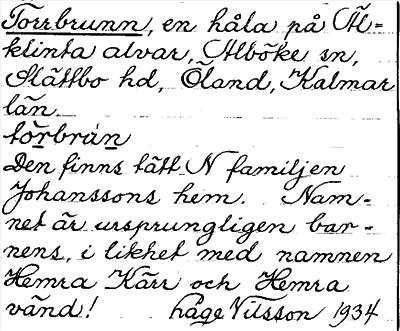 Torrbrunn, en håla på Äl=
klinta alvar, Alböke sn,
Slättbo hd, Öland, Kalmar
län.
torbrun
Den finns tätt N familjen
Johanssons hem. Nam-
net är ursprungligen bar-
nens, i likhet med namnen
Hemra Kärr och Hemra
vänd! Håge Nilsson 1934